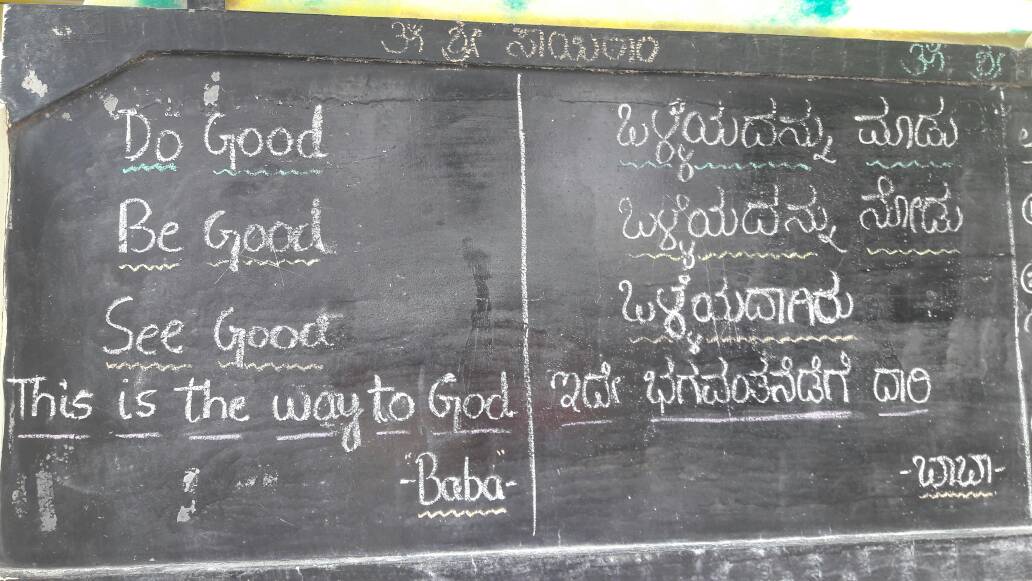 ॐ ಶ್ರೀ ಸಾಯಿರಾಂ
ॐ ಶ್ರೀ
Do Good
Be Good
See Good
This is the way to God
-"Baba"-
ಒಳ್ಳೆಯದನ್ನು ಮಾಡು
ಒಳ್ಳೆಯದನ್ನು ನೋಡು
ಒಳ್ಳೆಯದಾಗಿರು
ಇದೇ ಭಗವಂತನೆಡೆಗೆ ದಾರಿ
-ಬಾಬಾ-